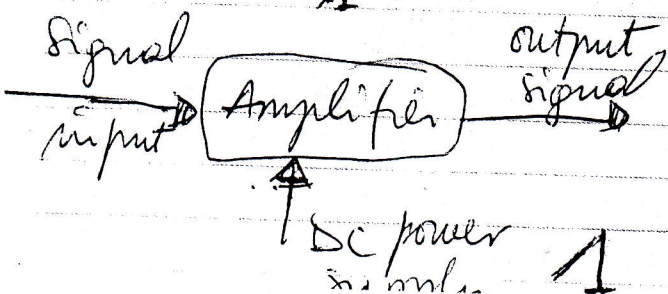 Signal
input
Amplifier
output
signal
DC power
supply
1